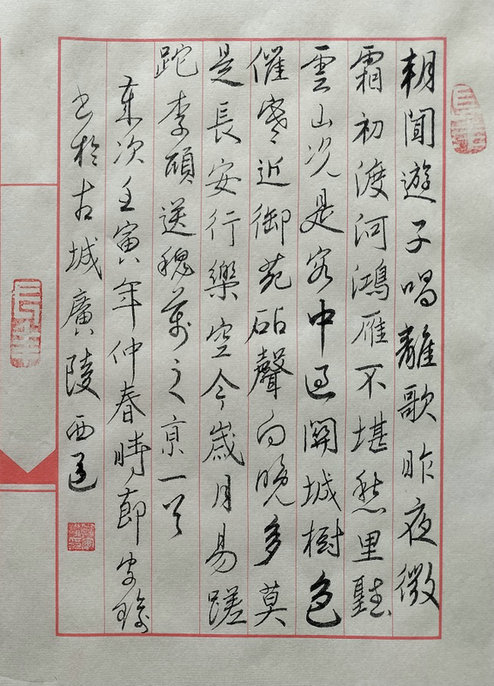 朝聞遊子唱離歌昨夜微
霜初渡河鴻雁不堪愁里聽
雲山况是客中過關城樹色
催寒近御苑砧聲向晚多莫
是長安行樂空令歲月易蹉
跎李頎送魏萬之京一首
歲次壬寅年仲春時節
書於古城廣陵西